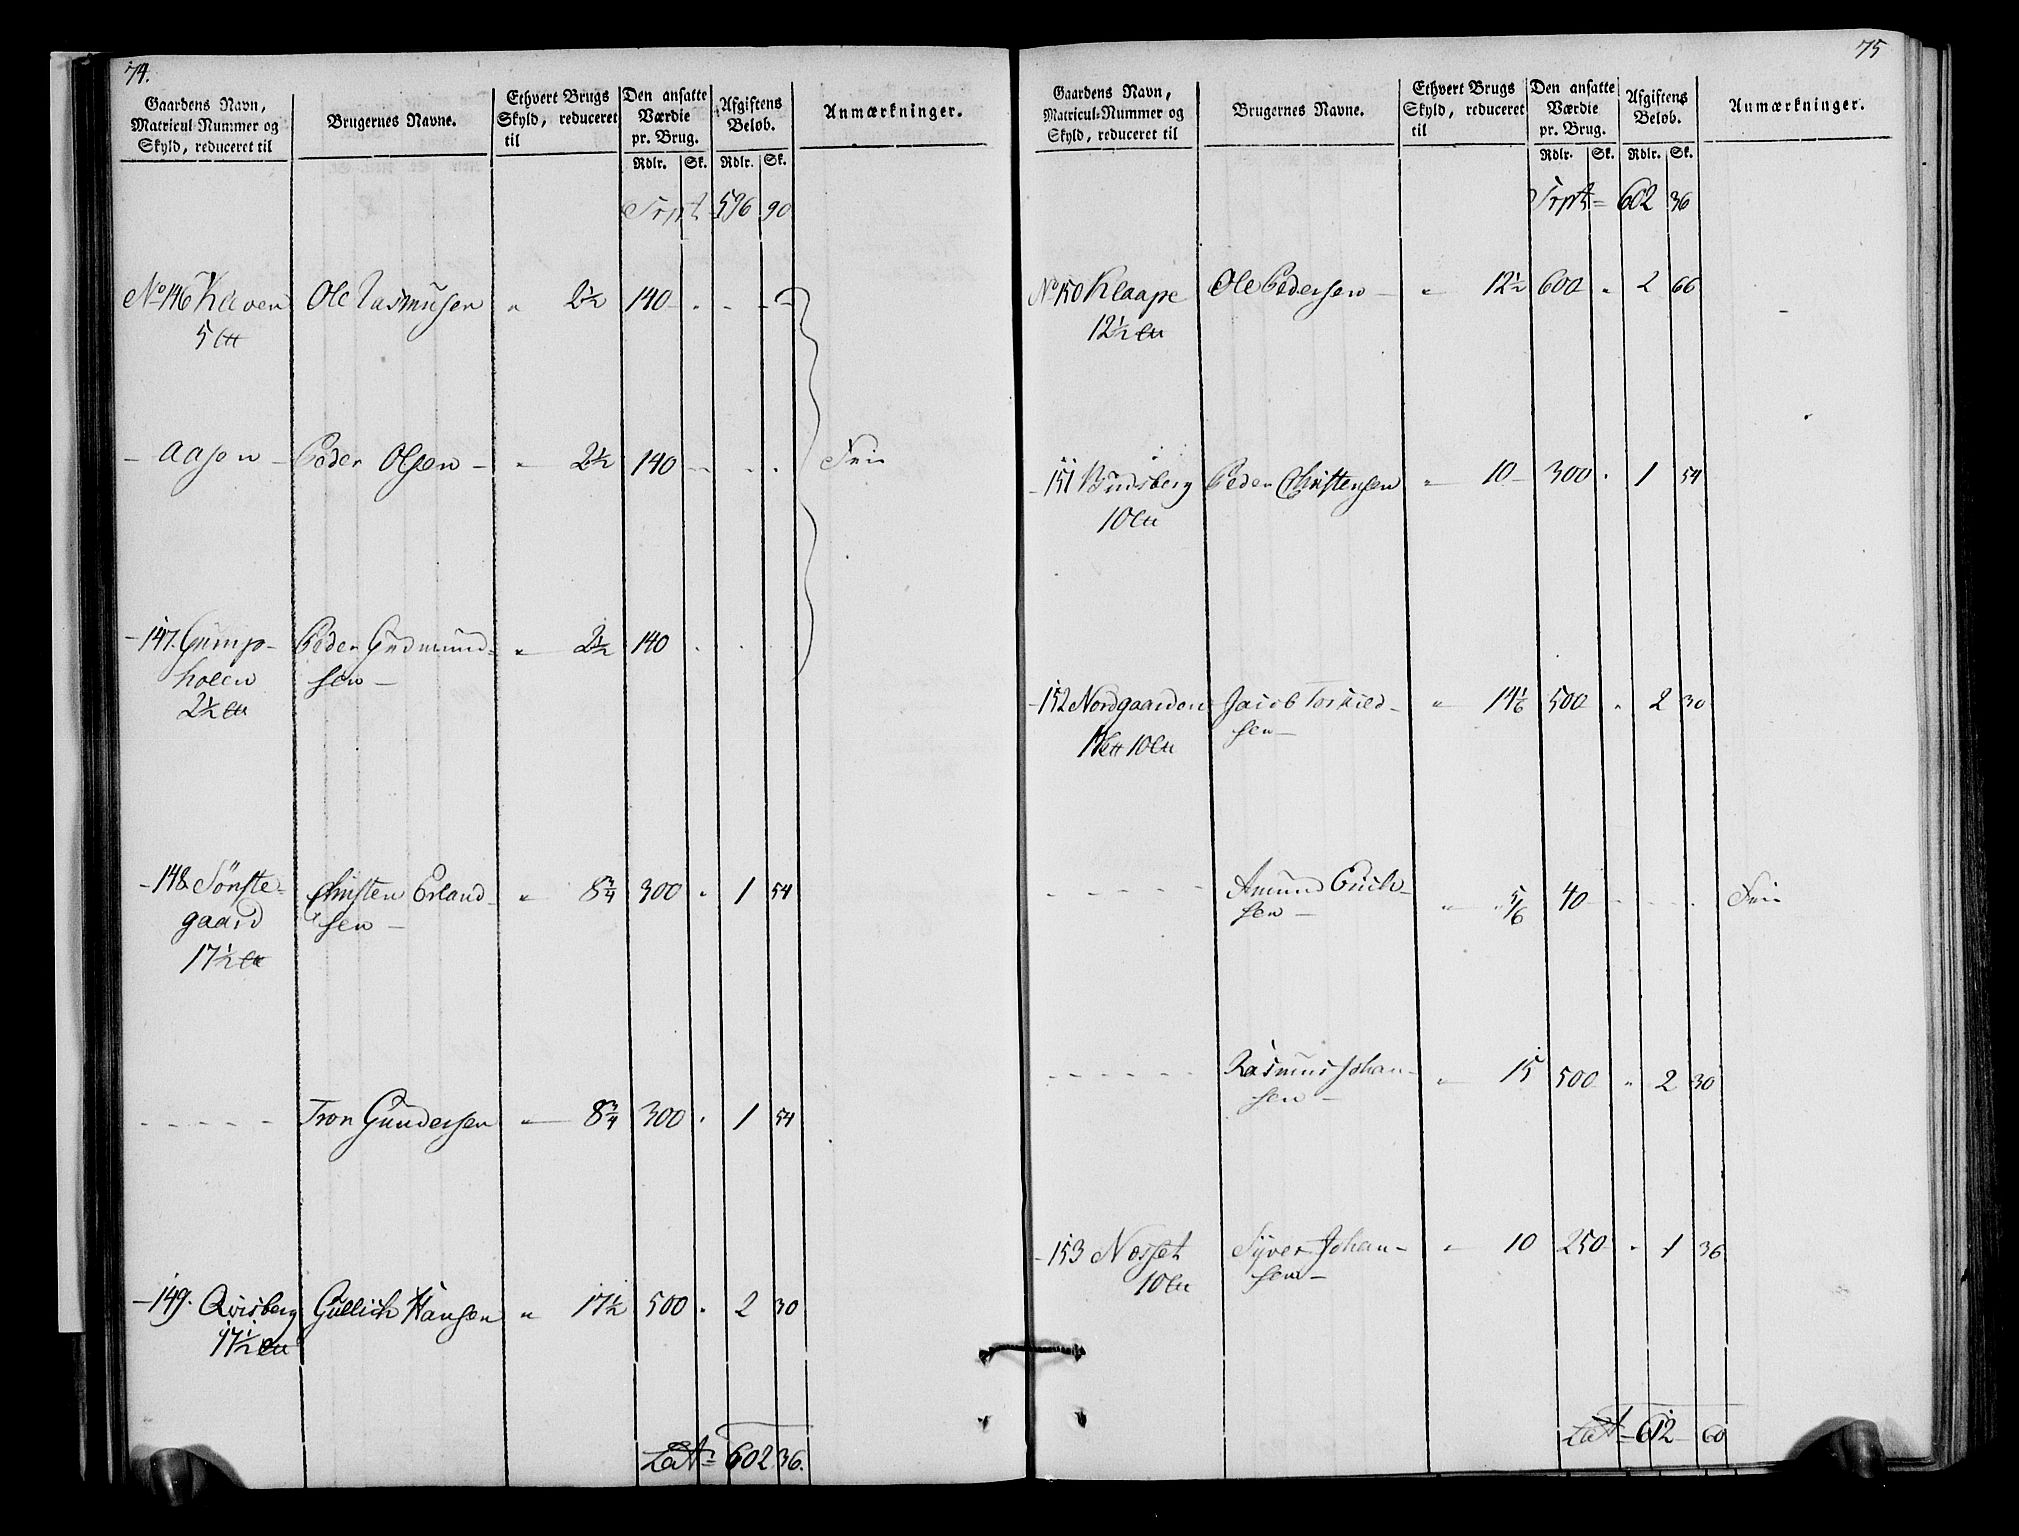 74.
Gaardens Navn,
Matricul-Nummer og
Skyld, reduceret til
Brugernes Navne.
Ethvert Brugs
Skyld, reduceret
til
Den ansatte
Værdie
pr. Brug.
Rdlr. Sk.
Afgiftens
Beløb.
Rdlr. Sk.
Anmærkninger.
Trpt 596 90
No 146 Kleven Ole Rasmusen " 2½ 140 - - -
5
- Aasen - Peder Olsen - " 2½ 140 - - - Frie
- 147. Gump- Peder Gudmund- " 2½ 140 - - -
holen sen -
2½
- 148. Sønste- Christen Erland- " 8¾ 300 " 1 54
gaard sen -
17½
- - - - - Tron Gundersen " 8¾ 300 " 1 54
- 149. Qvisberg Gullich Hansen " 17½ 500 " 2 30
17½
Lat= 602 36.
75
Gaardens Navn,
Matricul-Nummer og
Skyld, reduceret til
Brugernes Navne.
Ethvert Brugs
Skyld, reduceret
til
Den ansatte
Værdie
pr. Brug.
Rdlr. Sk.
Afgiftens
Beløb.
Rdlr. Sk.
Anmærkninger.
Trpt= 602 36
No 150 Klaape Ole Pedersen - " 12½ 600 " 2 66
12½
- 151 Budsberg Peder Christensen " 10 - 300 " 1 54
10
- 152 Nordgaarden Jacob Torkild- " 14⅙ 500 " 2 30
10 sen -
- - - - - Amund Erich- " " ⅚ 40 - - - Frie
sen -
- - - - - Rasmus Johan- " 15 500 " 2 30
sen -
- 153 Nosset Syver Johan- " 10 250 " 1 36
10 sen -
Lat= 612 60